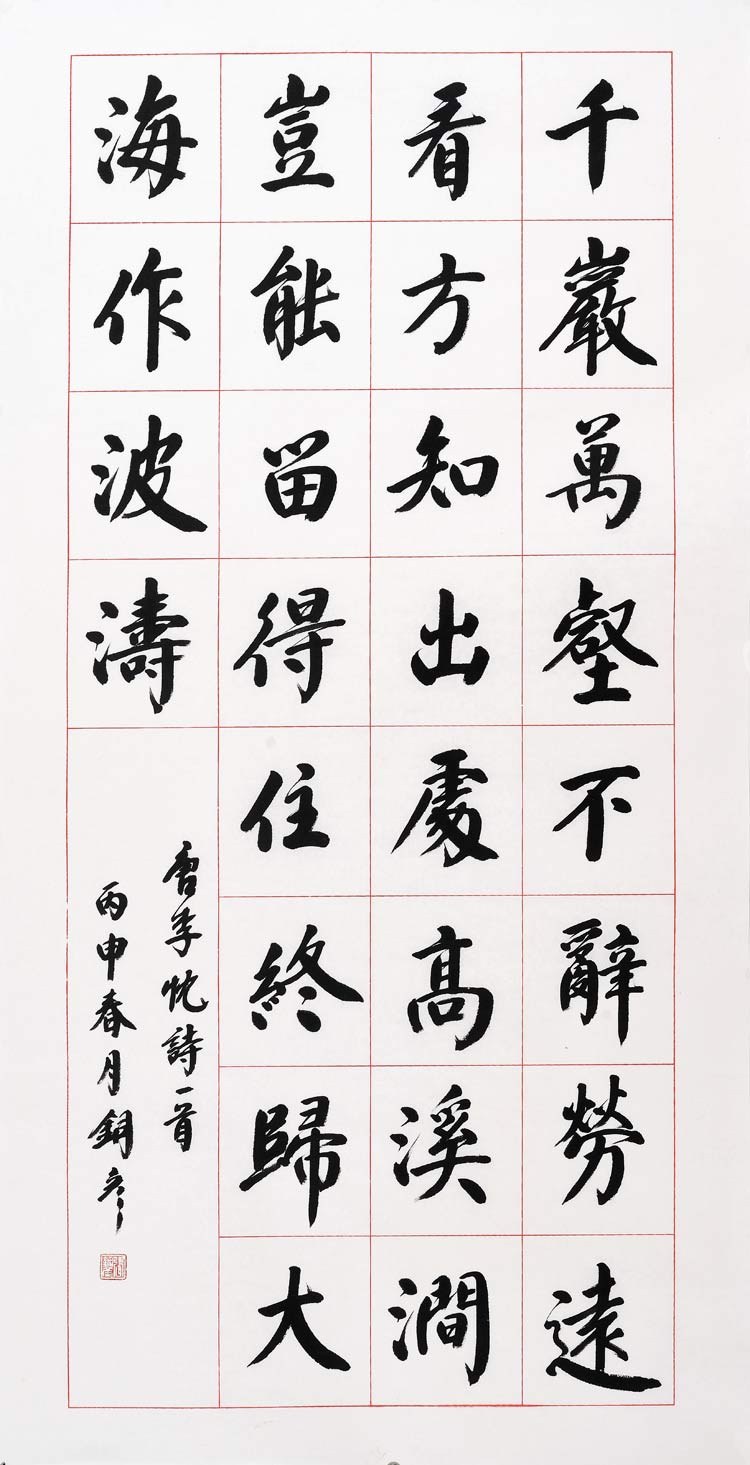 千巖萬壑不辭勞遠
看方知出處高溪澗
豈能留得住終歸大
海作波濤
唐李忱詩一首
丙申春月銅彥